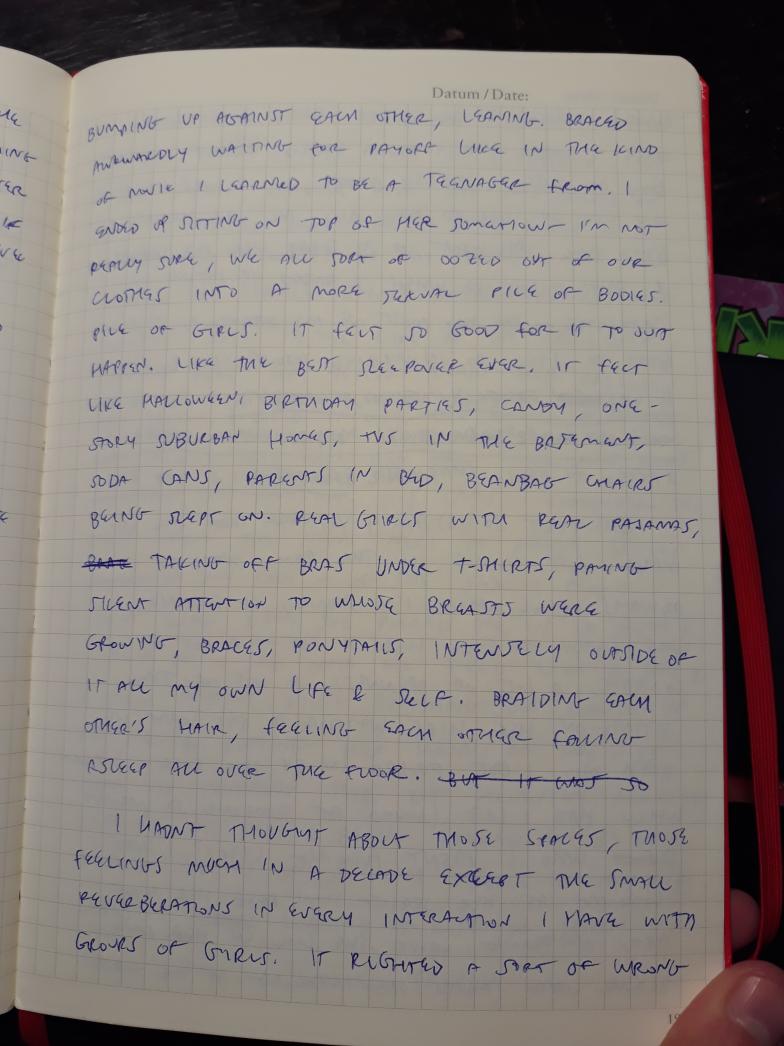 HE
ING
TER
Datum / Date:
BUMPING UP AGAINST EACH OTHER, LEANING. BRACED
AWKWARDLY WAITING FOR PAYOFF LIKE IN THE KIND
OF MOVIE I LEARNED TO BE A TEENAGER FROM. I
ENDED UP SITTING ON TOP OF HER SOMEHOW - I'M NOT
REALLY SURE, WE ALL SORT OF OOZED OUT OF OUR
CLOTHES INTO A MORE SEXUAL PILE OF BODIES.
PILE OF GIRLS. IT FELT SO GOOD FOR IT TO JUST
HAPPEN. LIKE THE BEST SLEEPOVER EVER. IT FELT
LIKE HALLOWEEN, BIRTHDAY PARTIES, CANDY, ONE-
STORY SUBURBAN HOMES, TVS IN THE BASEMENT,
SODA CANS, PARENTS IN BED, BEANBAG CHAIRS
BEING SLEPT ON. REAL GIRLS WITH REAL PAJAMAS,
TAKING OFF BRAS UNDER T-SHIRTS, PAYING
SILENT ATTENTION TO WHOSE BREASTS WERE
GROWING, BRACES, PONYTAILS, INTENSELY OUTSIDE OF
IT ALL MY OWN LIFE & SELF. BRAIDING EACH
OTHER'S HAIR, FEELING EACH OTHER FALLING
ASLEEP ALL OVER THE FLOOR. BUT IT WAS SO
I HADNT THOUGHT ABOUT THOSE SPACES, THOSE
FEELINGS MUCH IN A DECADE EXCEPT THE SMALL
REVERBERATIONS IN EVERY INTERACTION I HAVE WITH
GROUPS OF GIRLS. IT RIGHTED A SORT OF WRONG